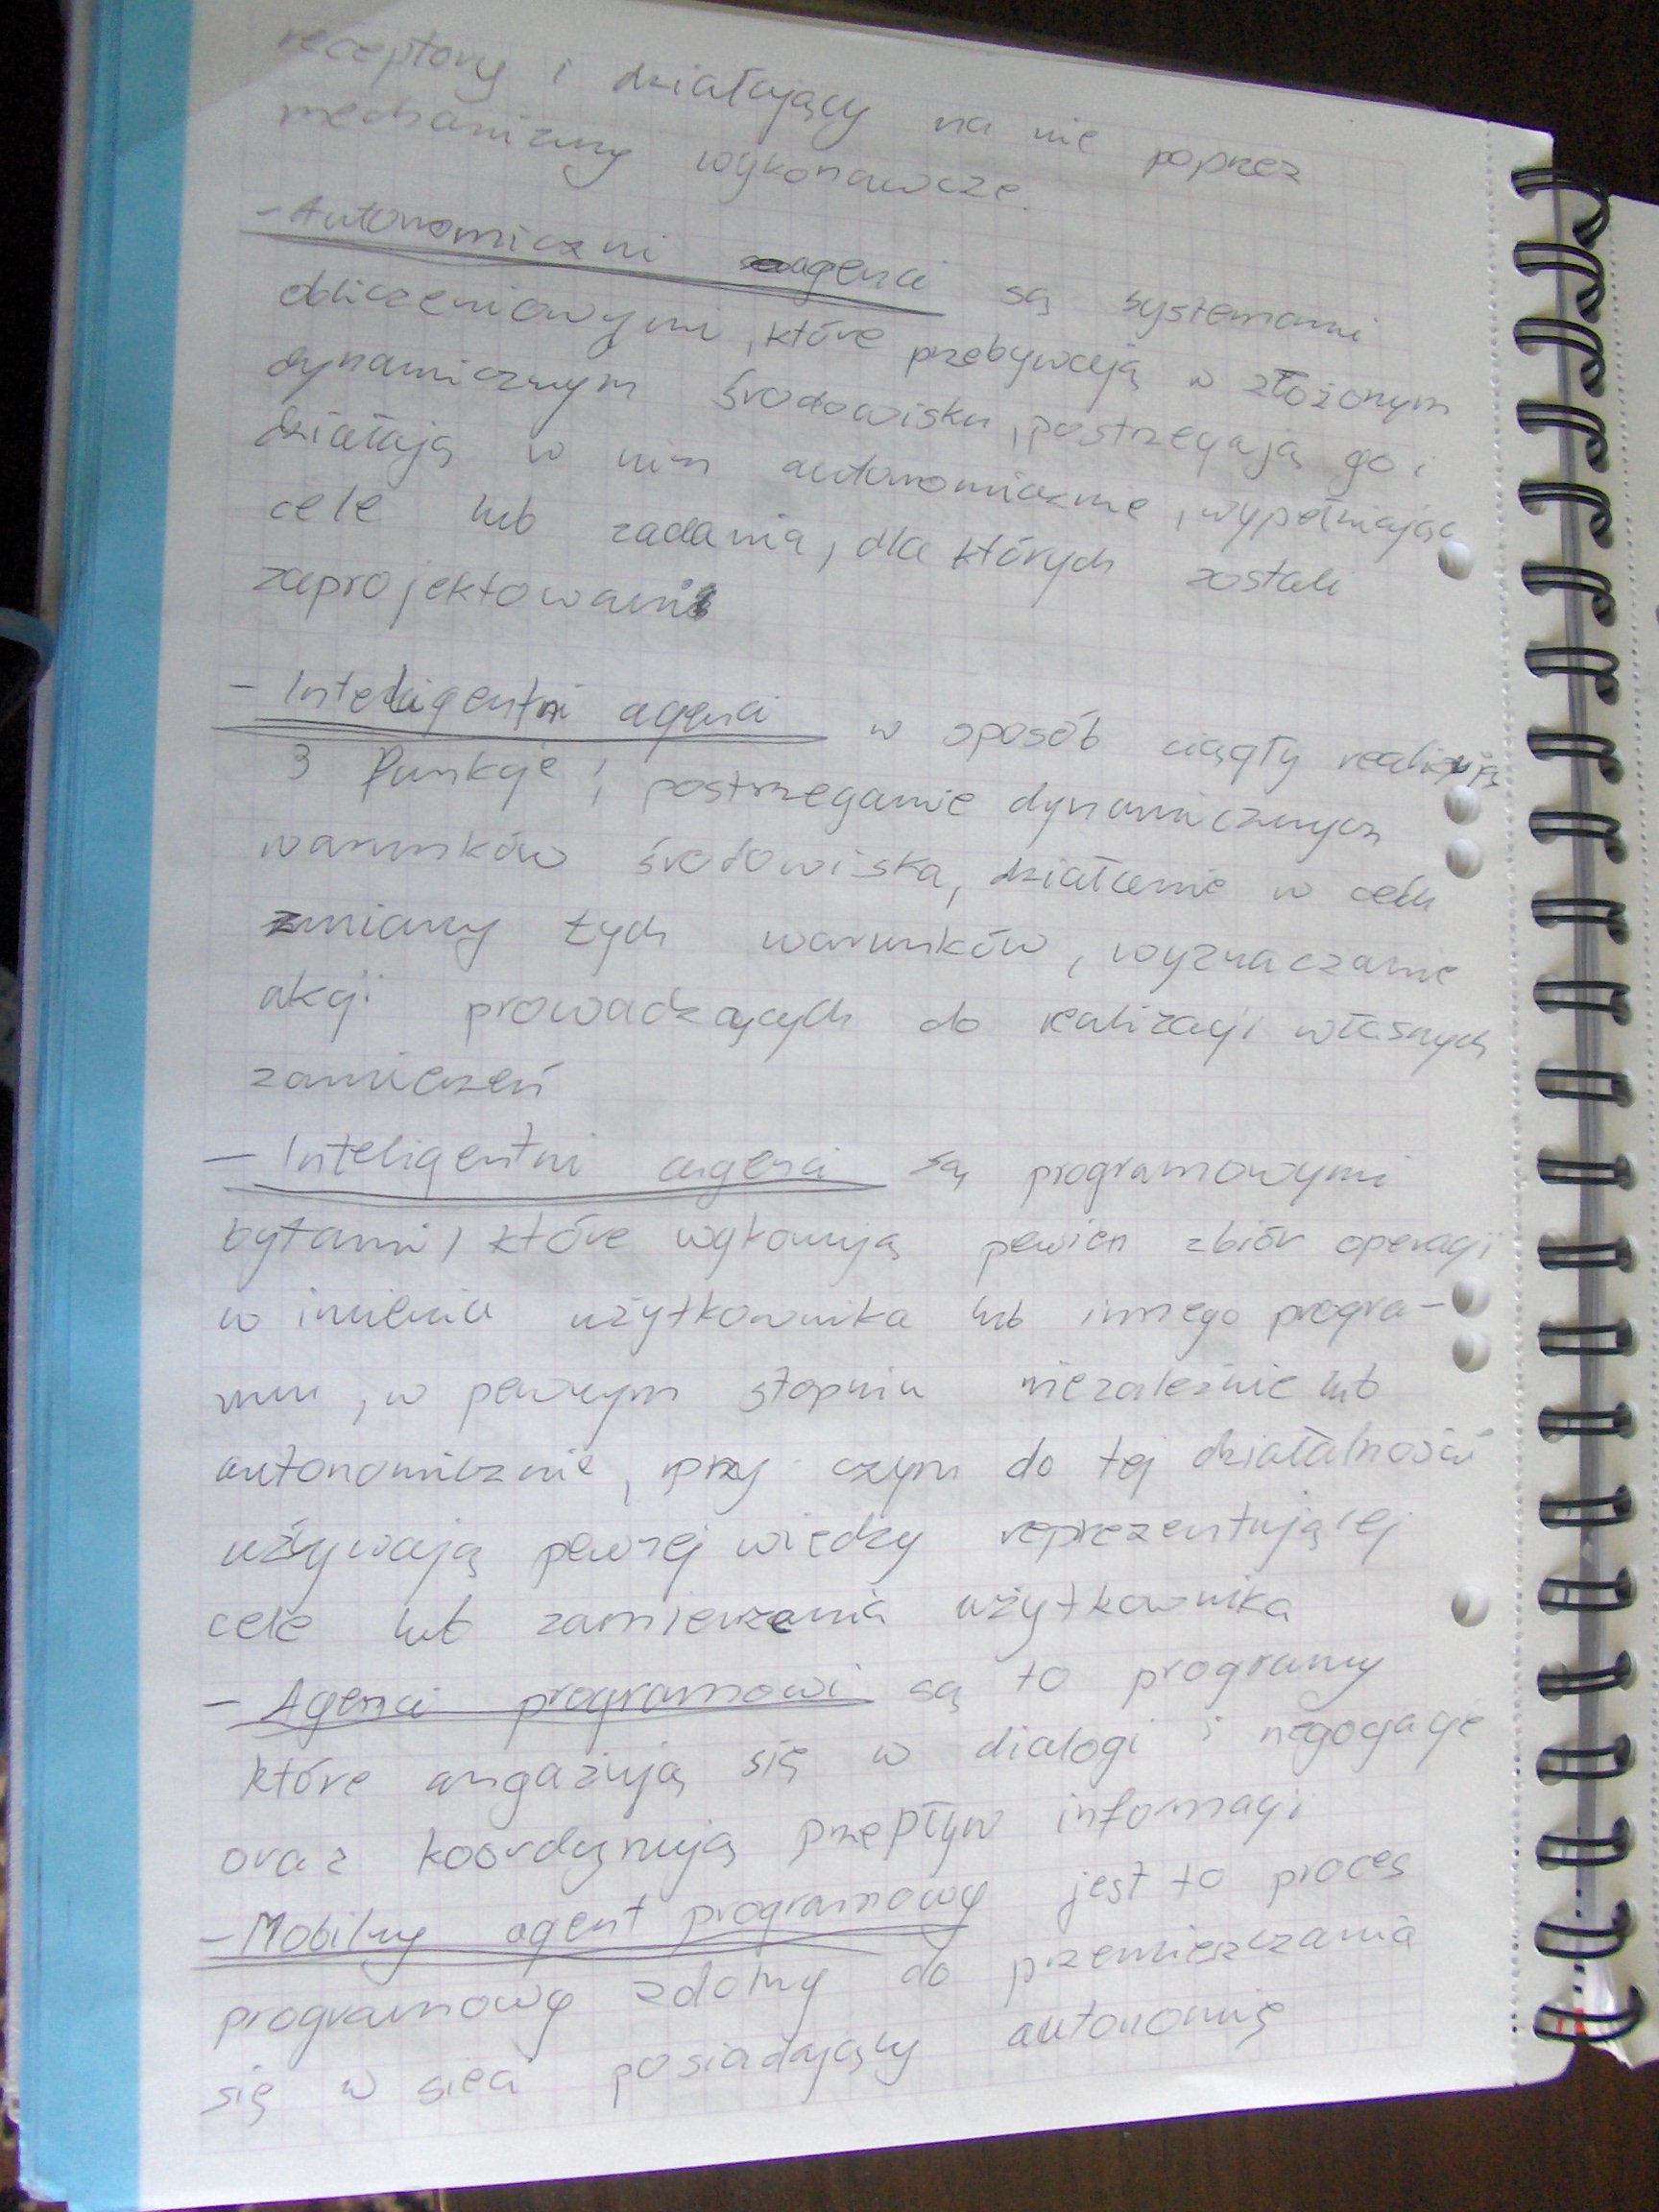 receptory i działający na nie poprzez
mechanizmy wykonawcze.
- Autonomiczni agenci są systemami
obliczeniowymi, które przebywają w złożonym
dynamicznym środowisku, postrzegają go i
działają w nim autonomicznie, wypełniając
cele lub zadania, dla których zostali
zaprojektowani
- Inteligentni agenci w sposób ciągły realizują
3 funkcje: postrzeganie dynamicznych
warunków środowiska, działanie w celu
zmiany tych warunków, wyznaczanie
akcji prowadzących do realizacji własnych
zamierzeń
- Inteligentni agenci są programowymi
bytami, które wykonują pewien zbiór operacji
w imieniu użytkownika lub innego progra-
mu, w pewnym stopniu niezależnie lub
autonomicznie, przy czym do tej działalności
używają pewnej wiedzy reprezentującej
cele lub zamierzenia użytkownika
- Agenci programowi są to programy
które angażują się w dialogi i negocjacje
oraz koordynują przepływ informacji
- Mobilny agent programowy jest to proces
programowy zdolny do przemieszczania
się w sieci posiadający autonomię